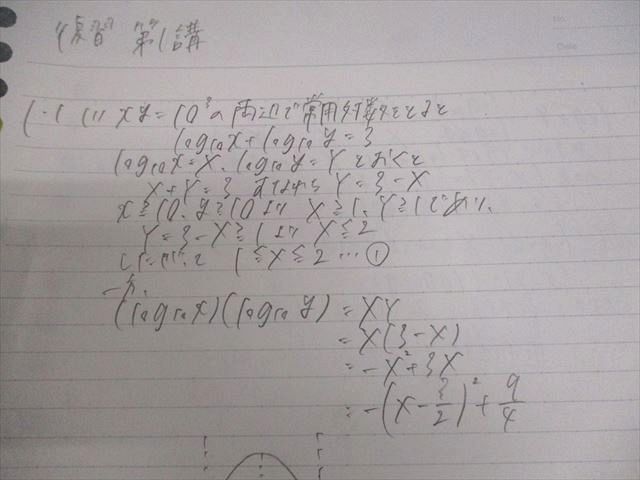 復習 第1講
1・1 (1) xy=10³の両辺で常用対数をとると
log₁₀x+log₁₀y=3
log₁₀x=X, log₁₀y=Yとおくと
X+Y=3 すなわち Y=3-X
x≧10, y≧10より X≧1, Y≧1であり、
Y=3-X≧1より X≦2
したがって 1≦X≦2 … ①
一方、
(log₁₀x)(log₁₀y) = XY
= X(3-X)
= -X²+3X
= -(X-3/2)²+9/4
No.
Date